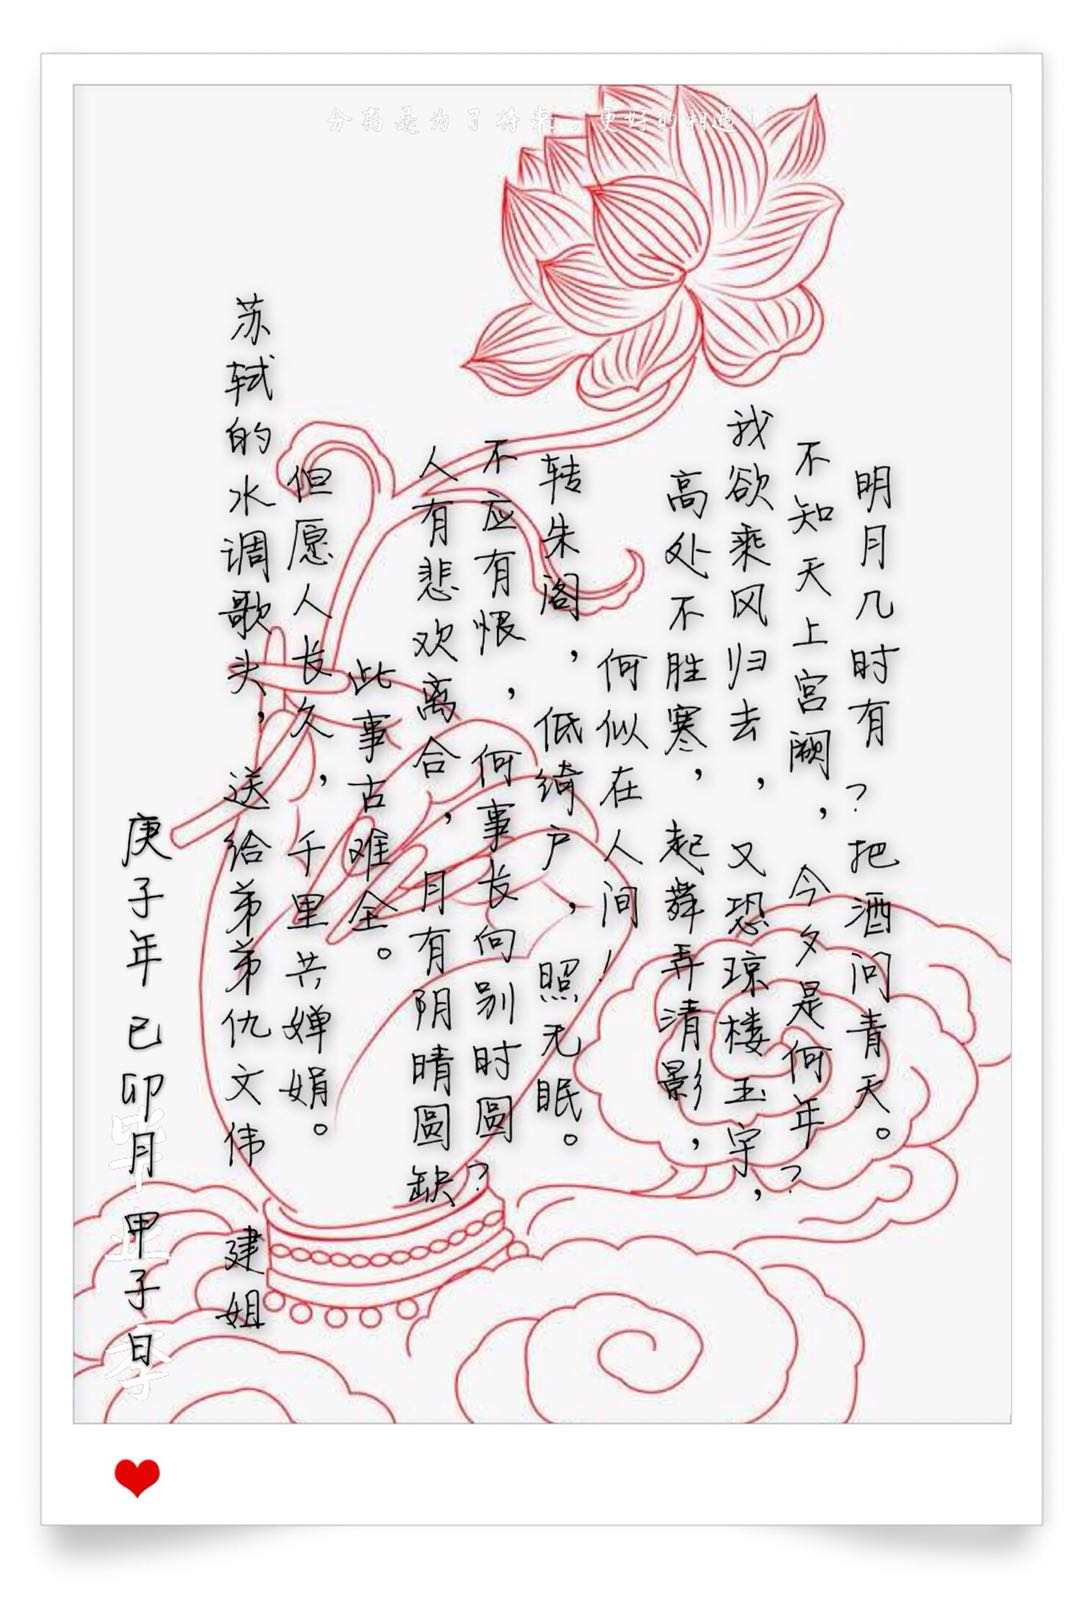 分离是为了将来,更好的相遇!
明月几时有?把酒问青天。
不知天上宫阙,今夕是何年?
我欲乘风归去,又恐琼楼玉宇,
高处不胜寒,起舞弄清影,
何似在人间!
转朱阁,低绮户,照无眠。
不应有恨,何事长向别时圆?
人有悲欢离合,月有阴晴圆缺
此事古难全。
但愿人长久,千里共婵娟。
苏轼的水调歌头,送给弟弟仇文伟 建姐
庚子年 已卯月 甲子日
毕业季